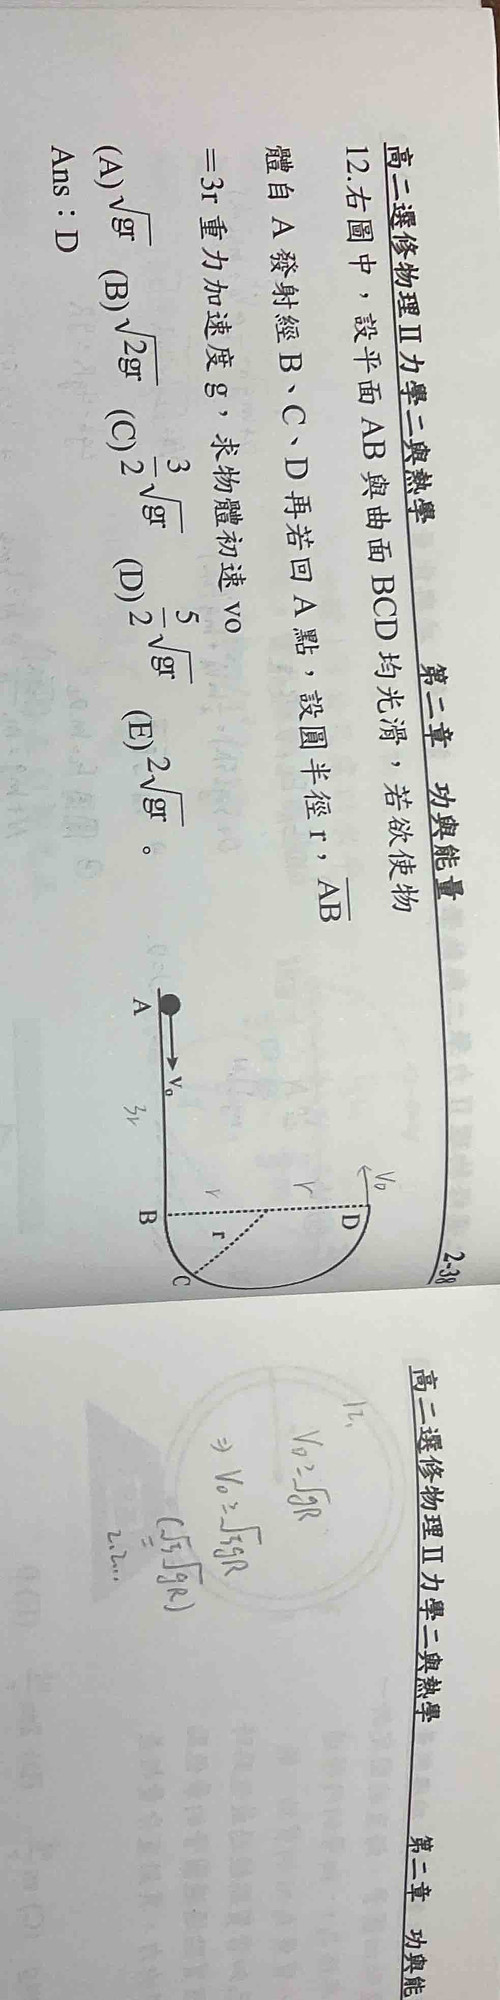 高二選修物理Ⅱ力學二與熱學 第二章 功與能量 2-38
12.右圖中，設平面 AB 與曲面 BCD 均光滑，若欲使物
體自 A 發射經 B、C、D 再若回 A 點，設圓半徑 r，AB
=3r 重力加速度 g，求物體初速 vo
(A)√gr (B)√2gr (C)3/2√gr (D)5/2√gr (E)2√gr。
Ans：D
V_D
D
r
r
r
C
A
V₀
3r
B
高二選修物理Ⅱ力學二與熱學 第二章 功與能
12.
V_D≥√gR
⇒ V₀≥√5gR
(√5√gR)
=
2.2...